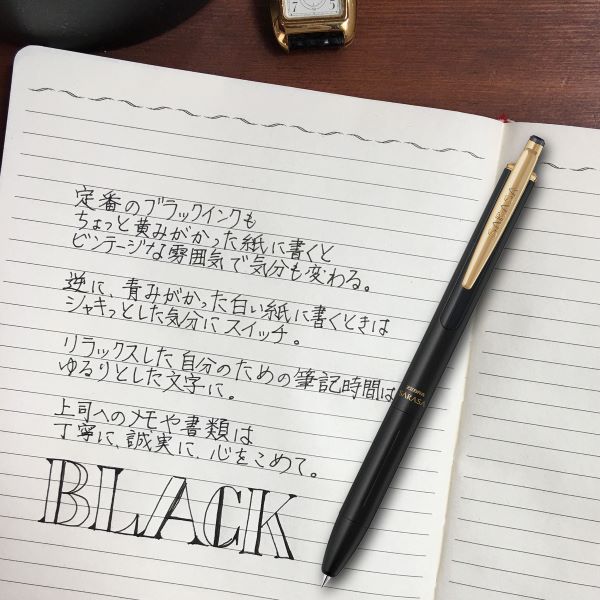 定番のブラックインクも
ちょっと黄みがかった紙に書くと
ビンテージな雰囲気で気分も変わる。
逆に、青みがかった白い紙に書くときは
シャキっとした気分にスイッチ。
リラックスした自分のための筆記時間は
ゆるりとした文字に。
上司へのメモや書類は
丁寧に、誠実に、心をこめて。
BLACK
SARASA
ZEBRA
SARASA